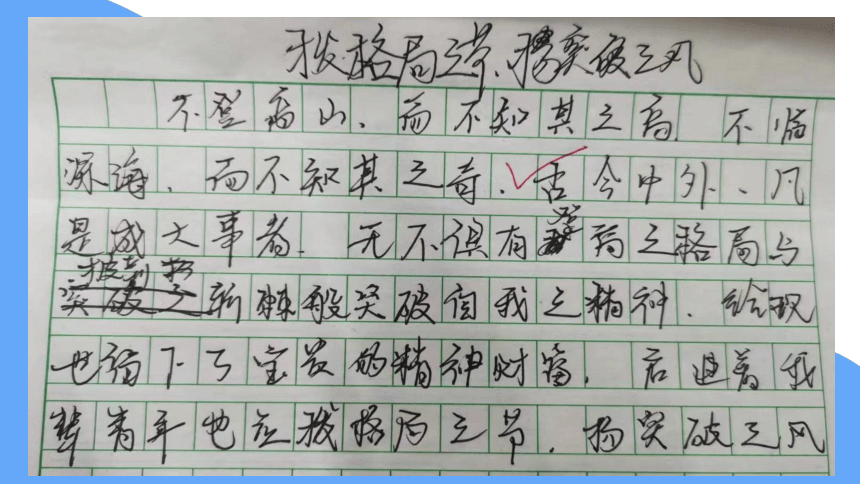 拔格局之节、扬突破之风
不登高山、而不知其之高、不临
深海、而不知其之奇、古今中外、凡
是成大事者、无不俱有高之格局与
披荆
斩棘般突破自我之精神、给现
世留下了宝贵的精神财富、启迪着我
辈青年也应拔格局之节、扬突破之风